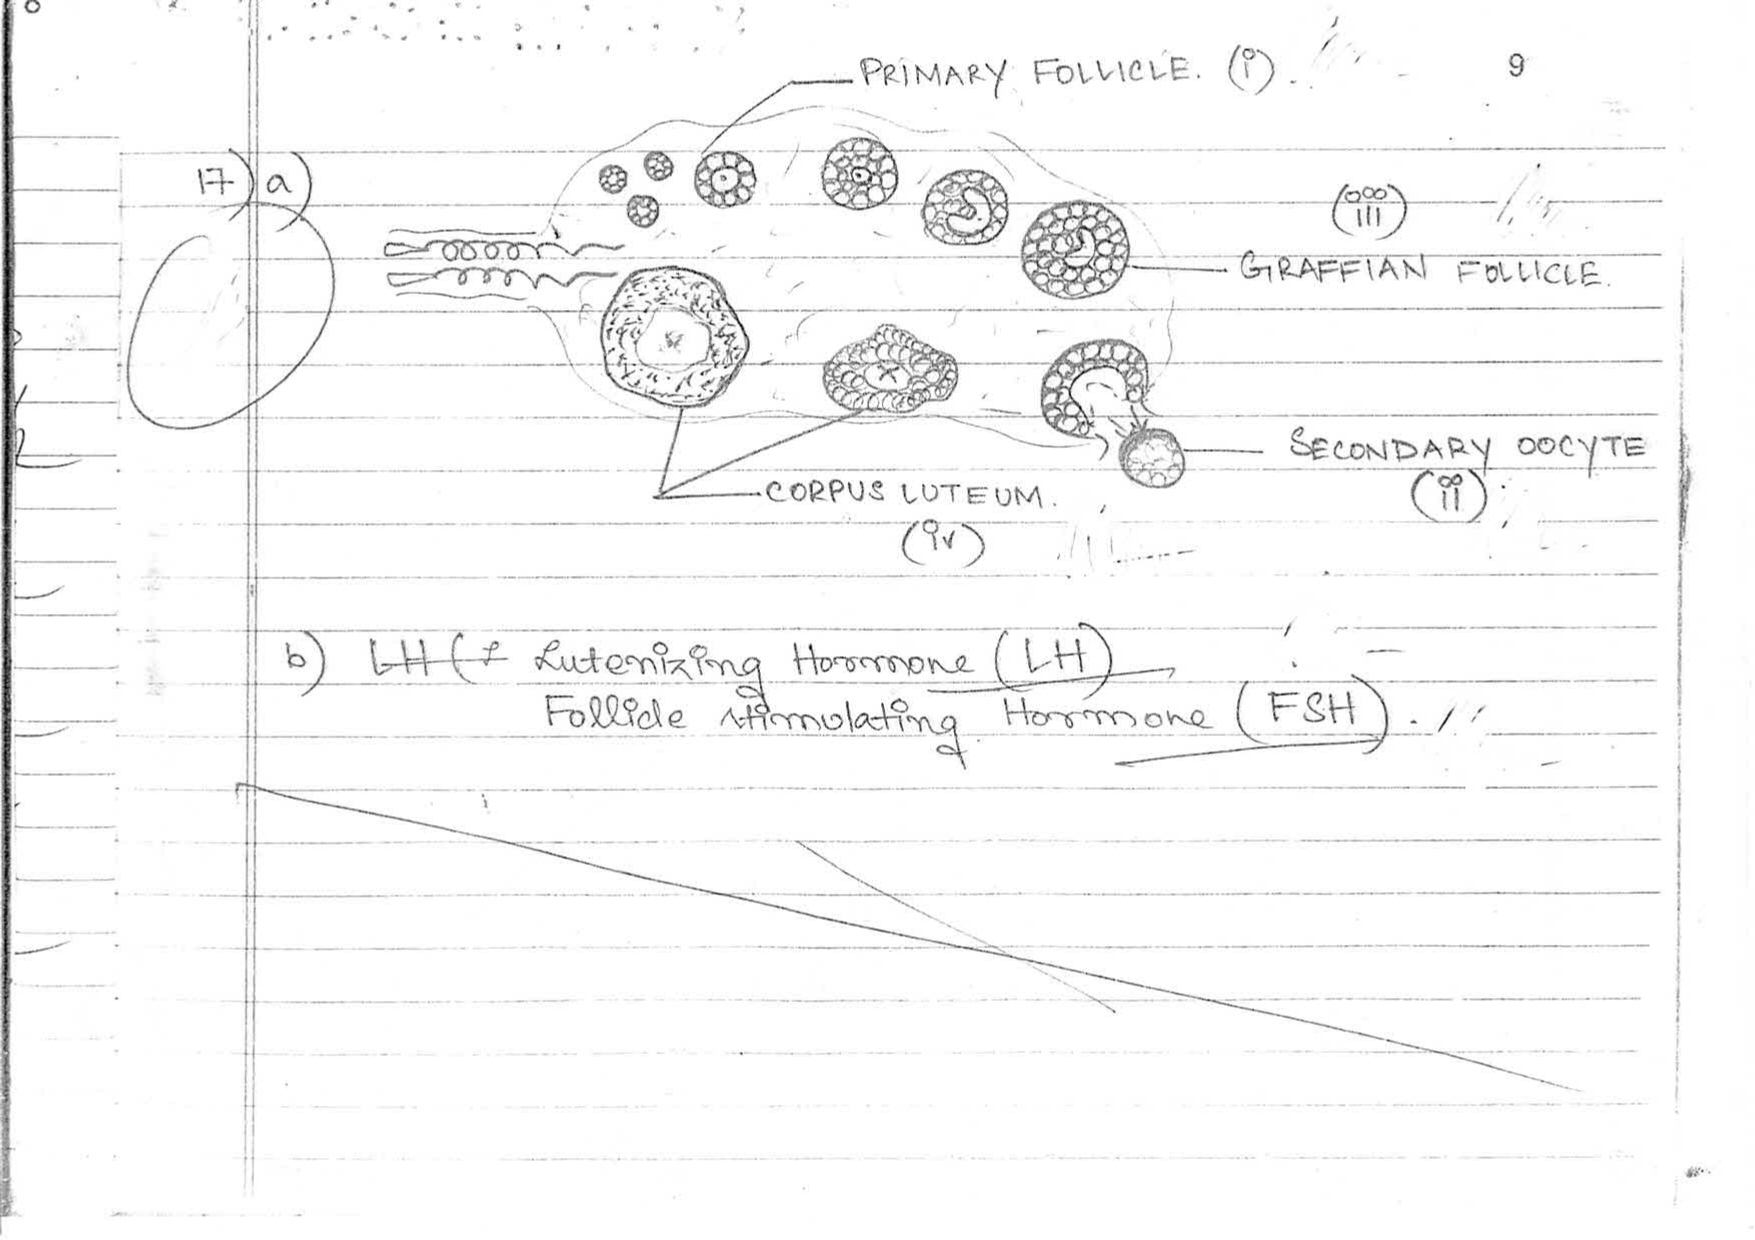 PRIMARY FOLLICLE. (i).
9
17) a)
(iii)
GRAFFIAN FOLLICLE.
SECONDARY OOCYTE
(ii)
CORPUS LUTEUM.
(iv)
b) LH ( Lutenizing Hormone (LH)
Follicle stimulating Hormone (FSH).